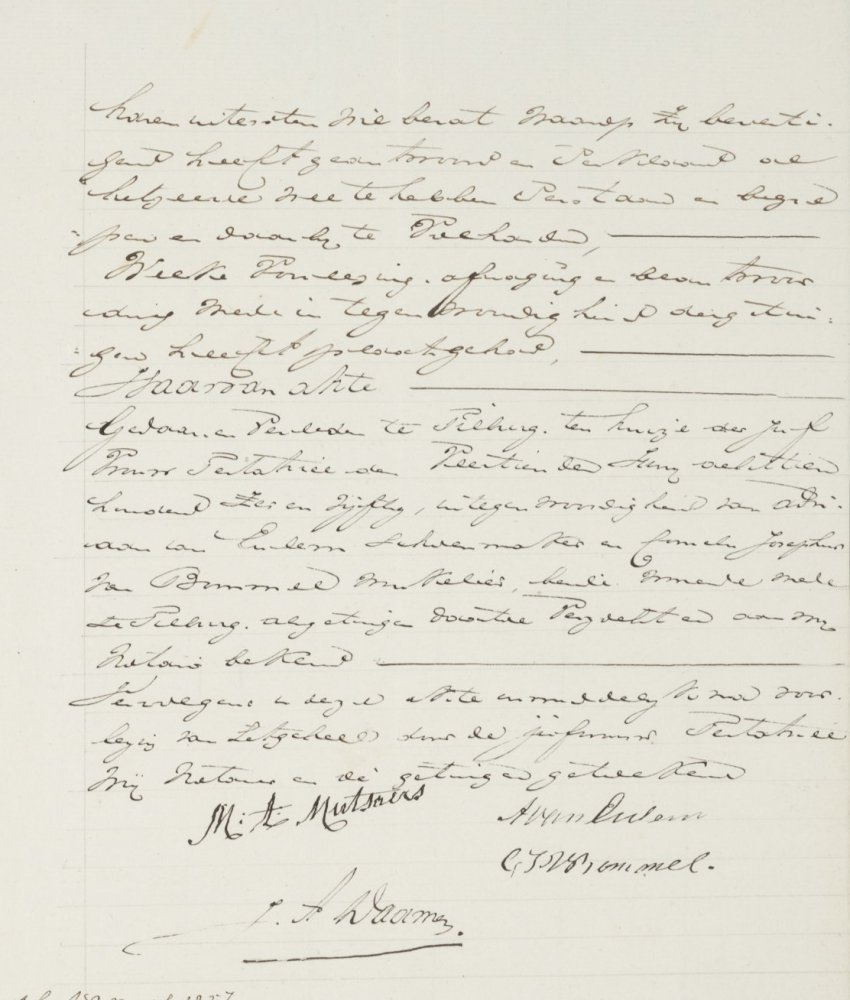 haren uitersten wil bevat waarop zij bevesti-
gend heeft geantwoord en verklaard al
hetzelve wel te hebben verstaan en begre
pen en daarbij te volharden,
Welke voorlezing, afvraging en beantwoor
ding mede in tegenwoordigheid der getui-
gen heeft plaatsgehad,
Waarvan akte
Gedaan en verleden te Tilburg, ten huize der Juf
vrouw testatrice den veertienden Juny achttien
honderd zes en vijftig, in tegenwoordigheid van Adri-
aan van Eulem schoenmaker en Cornelis Josephus
van Bommel winkelier, beide wonende mede
te Tilburg, als getuigen daartoe verzocht en aan my
Notaris bekend
en deze akte onmiddelijk na voor-
lezing van het geheel door de juffrouw testatrice
mij Notaris en de getuigen geteekend
M: A: Mutsaers
A van Eulem
C J V Bommel.
J. A Daamen.
1857